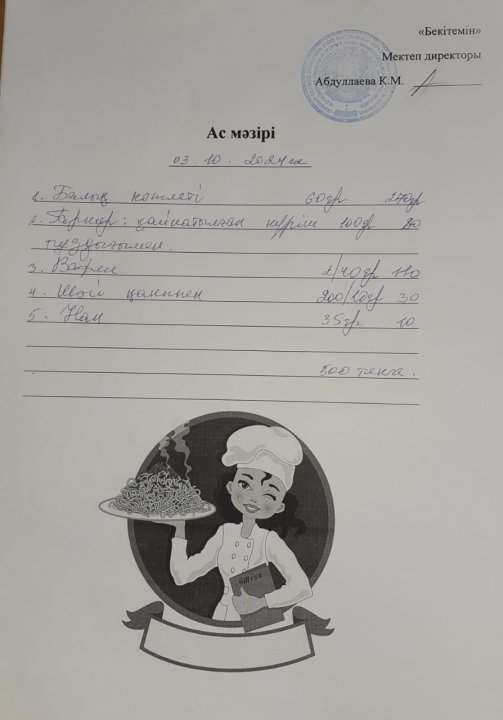 «Бекітемін»
Мектеп директоры
Абдуллаева К.М.
Ас мәзірі
03. 10. 2024ж
1. Балық котлеті 60гр 270гр
2. Гарнир: қайнатылған күріш 100гр 80
тұздығымен.
3. Вафли 2/40гр 110
4. Шай қантпен 200/10гр 30
5. Нан 35гр 10
500 тенге.